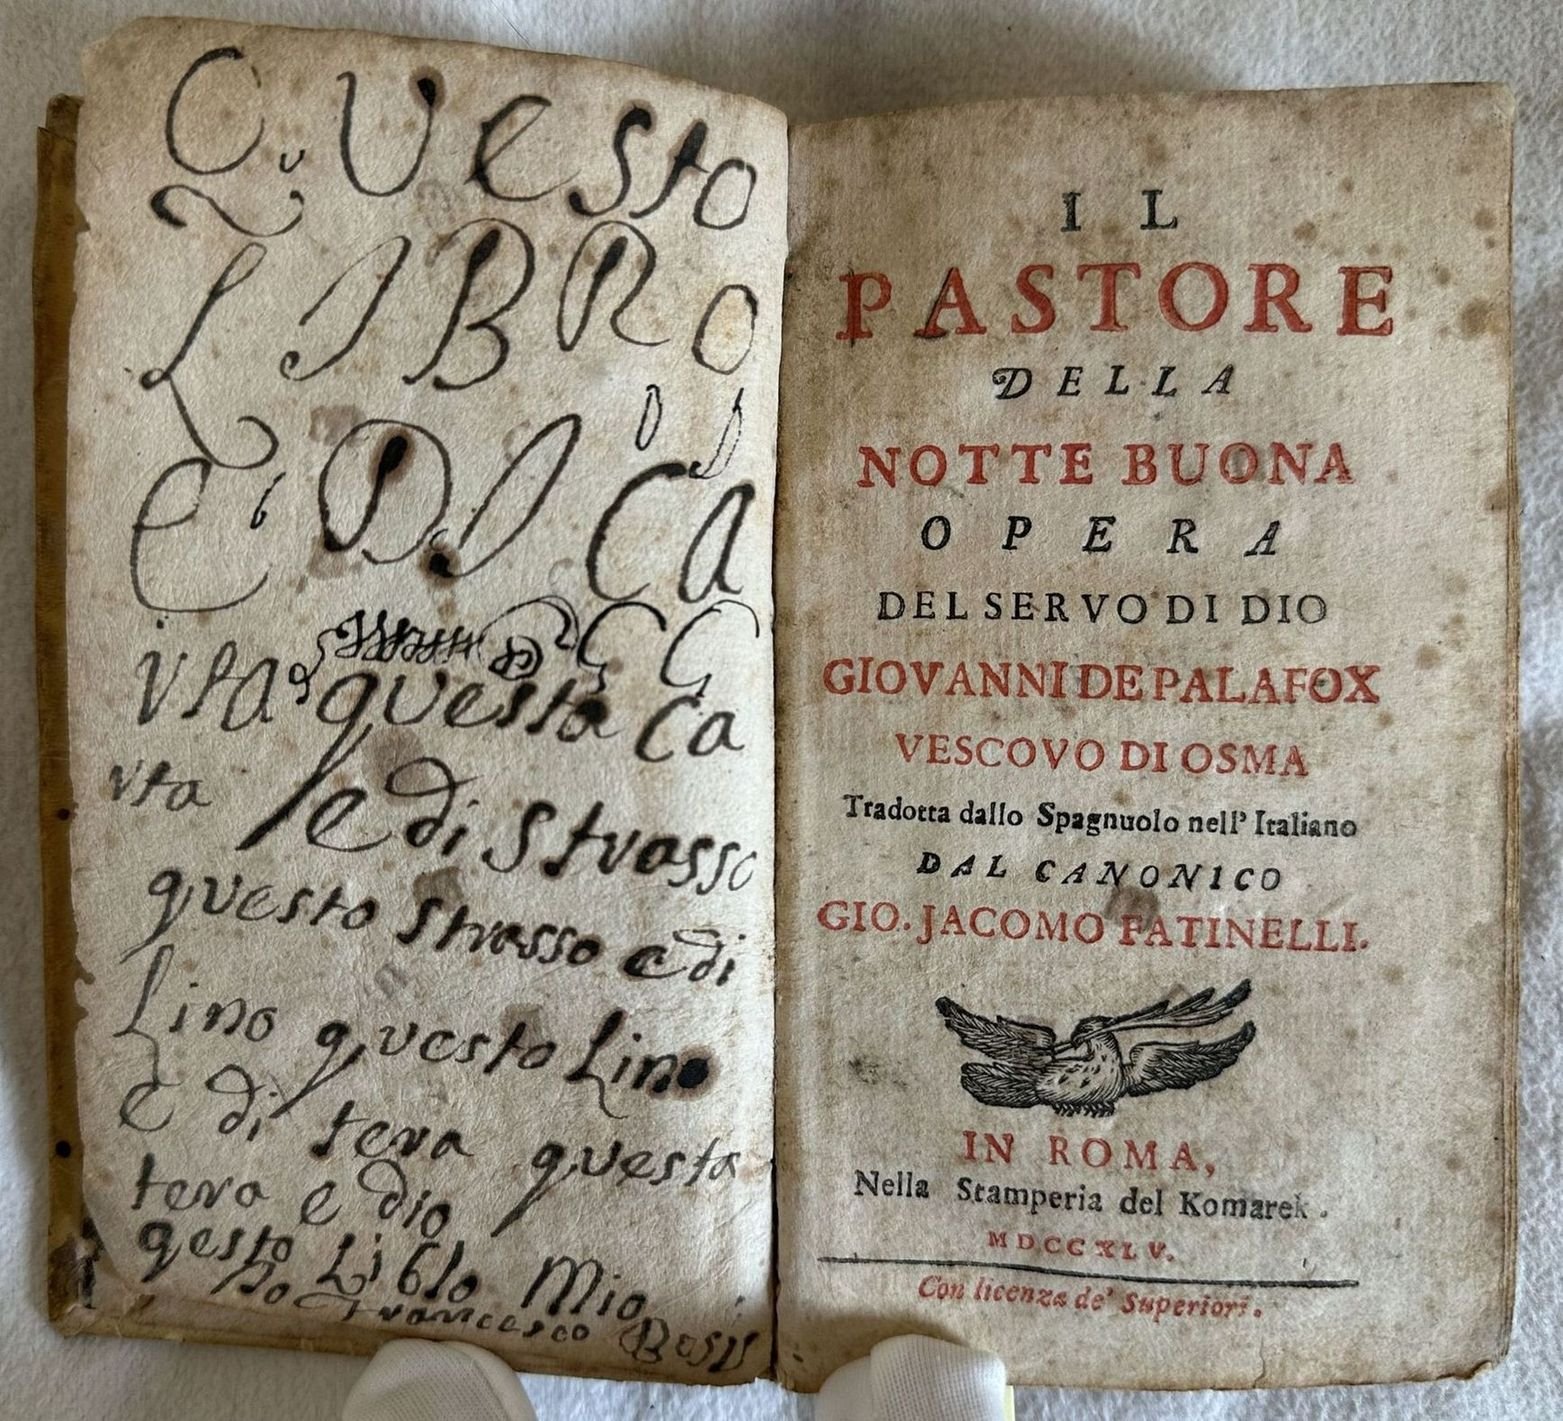 Questo
LIBRO
E DI CA
rta questa Ca
rta e di strasso
questo strasso e di
Lino questo Lino
e di tera questa
tera e dio
qesto Liblo Mio
Francesco
IL
PASTORE
DELLA
NOTTE BUONA
OPERA
DEL SERVO DI DIO
GIOVANNI DE PALAFOX
VESCOVO DI OSMA
Tradotta dallo Spagnuolo nell' Italiano
DAL CANONICO
GIO. JACOMO FATINELLI.
IN ROMA,
Nella Stamperia del Komarek.
MDCCXLV.
Con licenza de' Superiori.